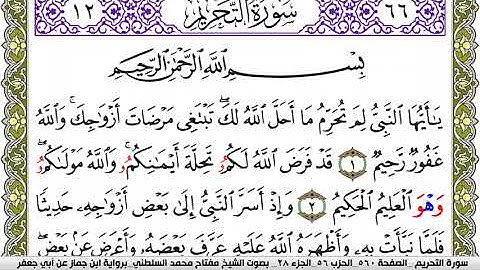 ١٢ سُورَةُ التَّحْرِيمِ ٦٦
بِسْمِ اللَّهِ الرَّحْمَٰنِ الرَّحِيمِ
يَٰأَيُّهَا النَّبِيُّ لِمَ تُحَرِّمُ مَا أَحَلَّ اللَّهُ لَكَۖ تَبْتَغِي مَرْضَاتَ أَزْوَٰجِكَۚ وَاللَّهُ
غَفُورٌ رَّحِيمٌ ١ قَدْ فَرَضَ اللَّهُ لَكُمُۥ تَحِلَّةَ أَيْمَٰنِكُمُۥۚ وَاللَّهُ مَوْلَىٰكُمُۥۖ
وَهْوَ الْعَلِيمُ الْحَكِيمُ ٢ وَإِذْ أَسَرَّ النَّبِيُّ إِلَىٰ بَعْضِ أَزْوَٰجِهِۦ حَدِيثًا
فَلَمَّا نَبَّأَتْ بِهِۦ وَأَظْهَرَهُ اللَّهُ عَلَيْهِ عَرَّفَ بَعْضَهُۥ وَأَعْرَضَ عَنۢ بَعْضٍۖ
سورة التحريم _الصفحة ٥٦٠_ الحزب ٥٦_ الجزء ٢٨_ بصوت الشيخ مفتاح محمد السلطني_ برواية ابن جماز عن أبي جعفر